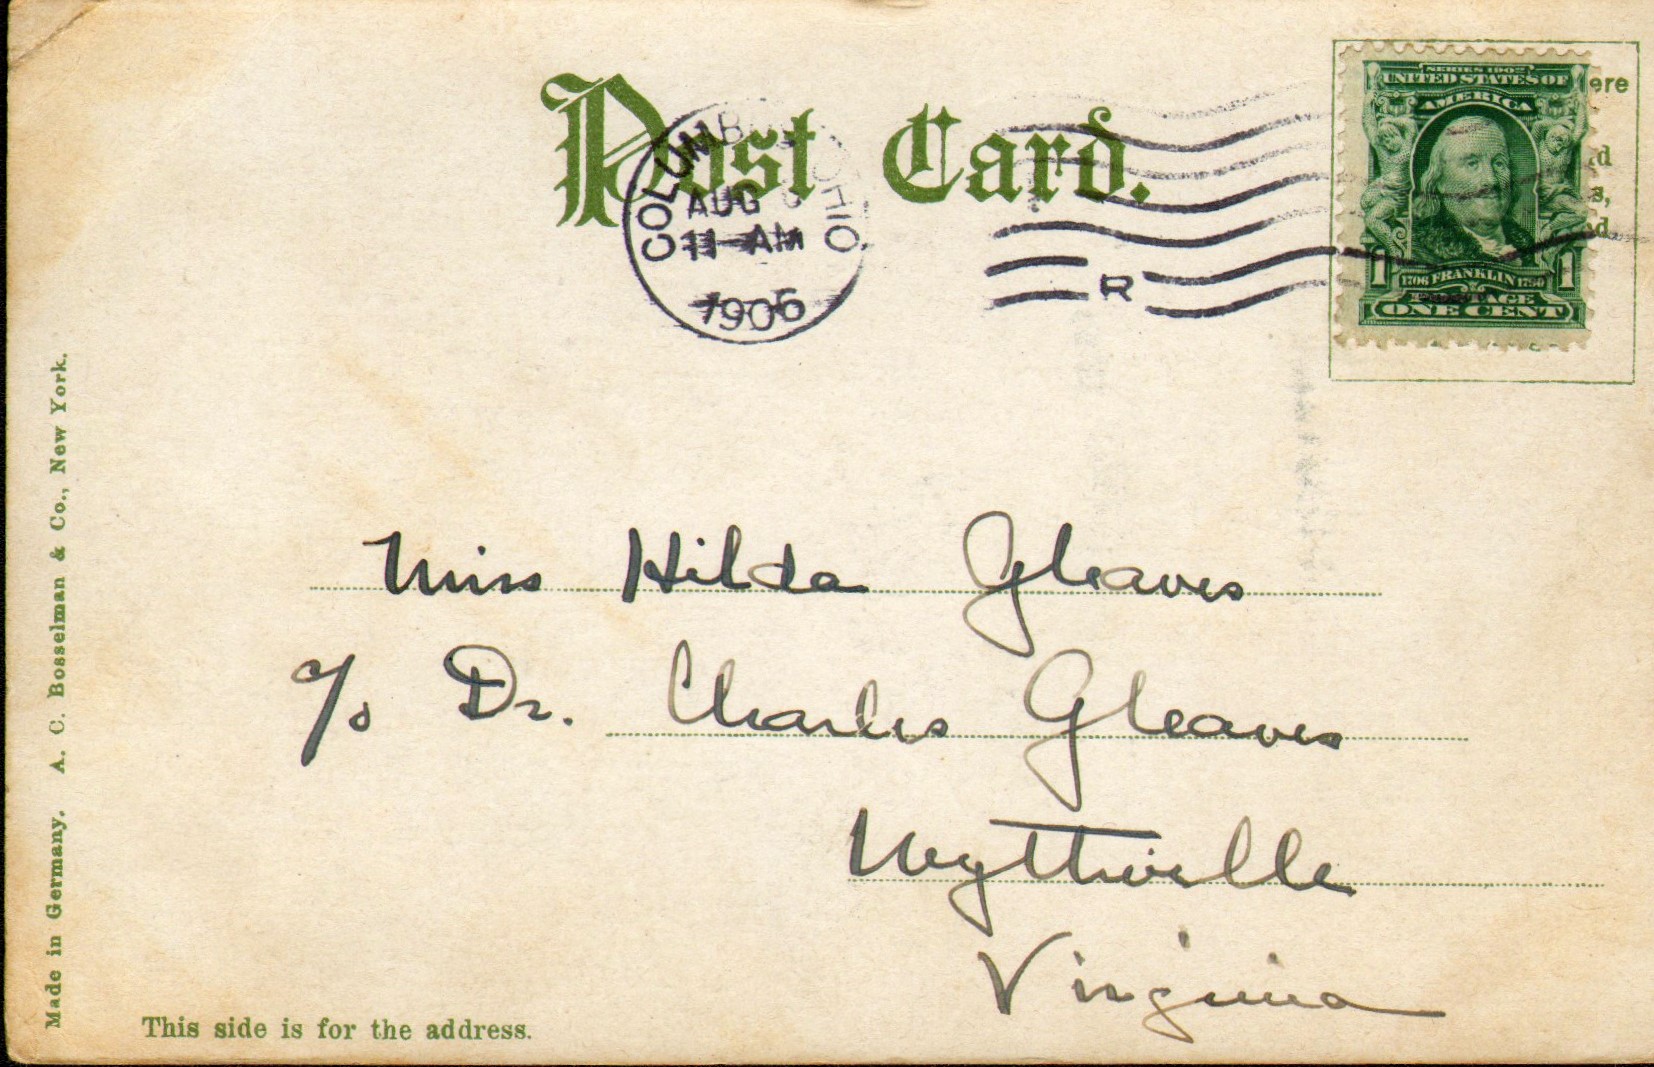 Post Card.
COLUMBUS OHIO
AUG
11-AM
1906
R
SERIES 1902
UNITED STATES OF
AMERICA
1706 FRANKLIN 1790
1 1
POSTAGE
ONE CENT
ere
Miss Hilda Gleaves
c/o Dr. Charles Gleaves
Wytheville
Virginia
Made in Germany. A. C. Bosselman & Co., New York.
This side is for the address.